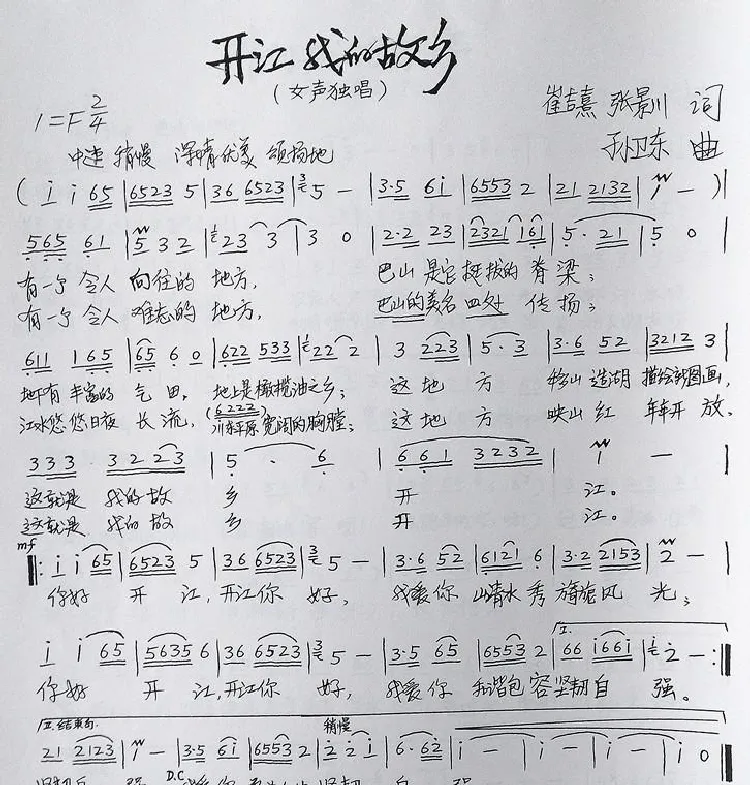 开江 我的故乡
(女声独唱)
1=F 2/4
崔吉熹 张景川 词
孙卫东 曲
中速 稍慢 深情优美 颂扬地
( i i 65 | 6523 5 | 36 6523 | 3 5 - | 3·5 6i | 6553 2 | 21 2132 | i - ) |
565 61 | 5 3 2 | 1 23 3 | 3 0 | 2·2 23 | 2321 161 | 5·21 | 5 0 |
有一个 令人 向往的 地方, 巴山 是它 挺拔的 脊 梁;
有一个 令人 难忘的 地方, 巴山的美名 四处 传 扬;
611 165 | 65 6 0 | 622 533 | 1 22 2 | 3 223 | 5·3 | 3·6 52 | 3212 3 |
地下有 丰富的 气 田, 地上是 橄榄油之乡; 这 地 方 移山 造湖 描绘新图画,
(6222)
江水悠 悠日夜 长 流, 川东平原 宽阔的胸膛; 这 地 方 映山 红 年年开 放,
333 3223 | 5 · 6 | 661 3232 | i - |
这就是 我的故 乡 开 江。
这就是 我的故 乡 开 江。
mf
|: i i 65 | 6523 5 | 36 6523 | 3 5 - | 3·6 52 | 6121 6 | 3·2 2153 | 2 - |
你好 开 江, 开江你 好, 我爱你 山清水 秀 旖旎风 光;
i i 65 | 5635 6 | 36 6523 | 3 5 - | 3·5 65 | 6553 2 | I. 66 i66i | i 2 - :|
你好 开 江, 开江你 好, 我爱你 和谐包 容坚韧自 强。
II. 结束句 稍慢
21 2123 | i - | 3·5 6i | 6553 2 | 2 2 i | 6·62 | i - | i - | i - | i 0 |
D.C